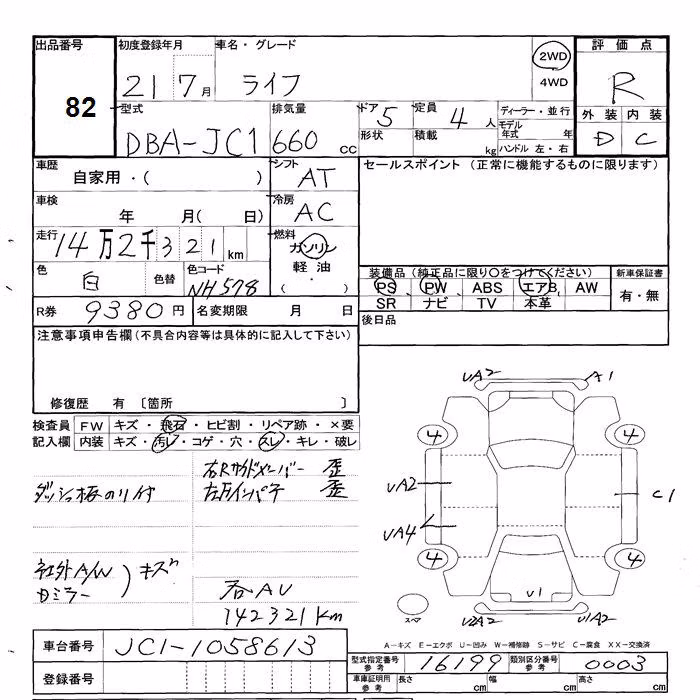 出品番号 82
初度登録年月 21 7月
車名・グレード ライフ
2WD
4WD
評価点 R
外装 D 内装 C
型式 DBA-JC1
排気量 660cc
ドア 5 定員 4人
形状 積載 kg
ディーラー・並行
モデル年式 年
ハンドル 左・右
車歴 自家用・( )
シフト AT
セールスポイント (正常に機能するものに限ります)
車検 年 月( 日)
冷房 AC
走行 14万2千321km
燃料 ガソリン
軽油
( ・ )
色 白 色替 色コード NH578
装備品(純正品に限り〇をつけてください)
新車保証書
PS PW ABS エアB AW
SR ナビ TV 本革
有・無
R券 9380円 名変期限 月 日
後日品
注意事項申告欄(不具合内容等は具体的に記入して下さい)
修復歴 有 〔箇所 〕
検査員 FW キズ・飛石・ヒビ割・リペア跡・×要
記入欄 内装 キズ・汚レ・コゲ・穴・スレ・キレ・破レ
右Rサイドメンバー 歪
ダッシュ板のり付
右 歪
社外A/W
Dミラー
) キズ
AU
142321km
UA2 A1
4 4
UA2 C1
UA4
4 4
U1
スペア
U2A2 U1A2
車台番号 JC1-1058613
登録番号
A-キズ E-エクボ U-凹み W-補修跡 S-サビ C-腐食 XX-交換済
型式指定番号 参考 16199 類別区分番号 参考 0003
車庫証明用 参考 長さ cm 幅 cm 高さ cm